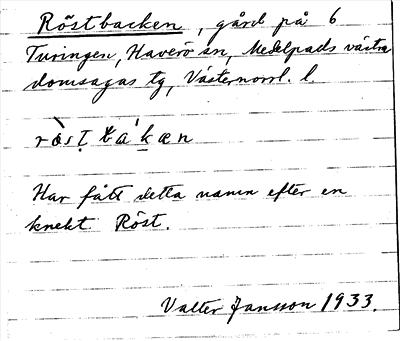 Röstbacken, gård på 6
Turingen, Haverö sn, Medelpads västra
domsagas tg, Västernorrl. l.
Har fått detta namn efter en
knekt Röst.
Valter Jansson 1933.